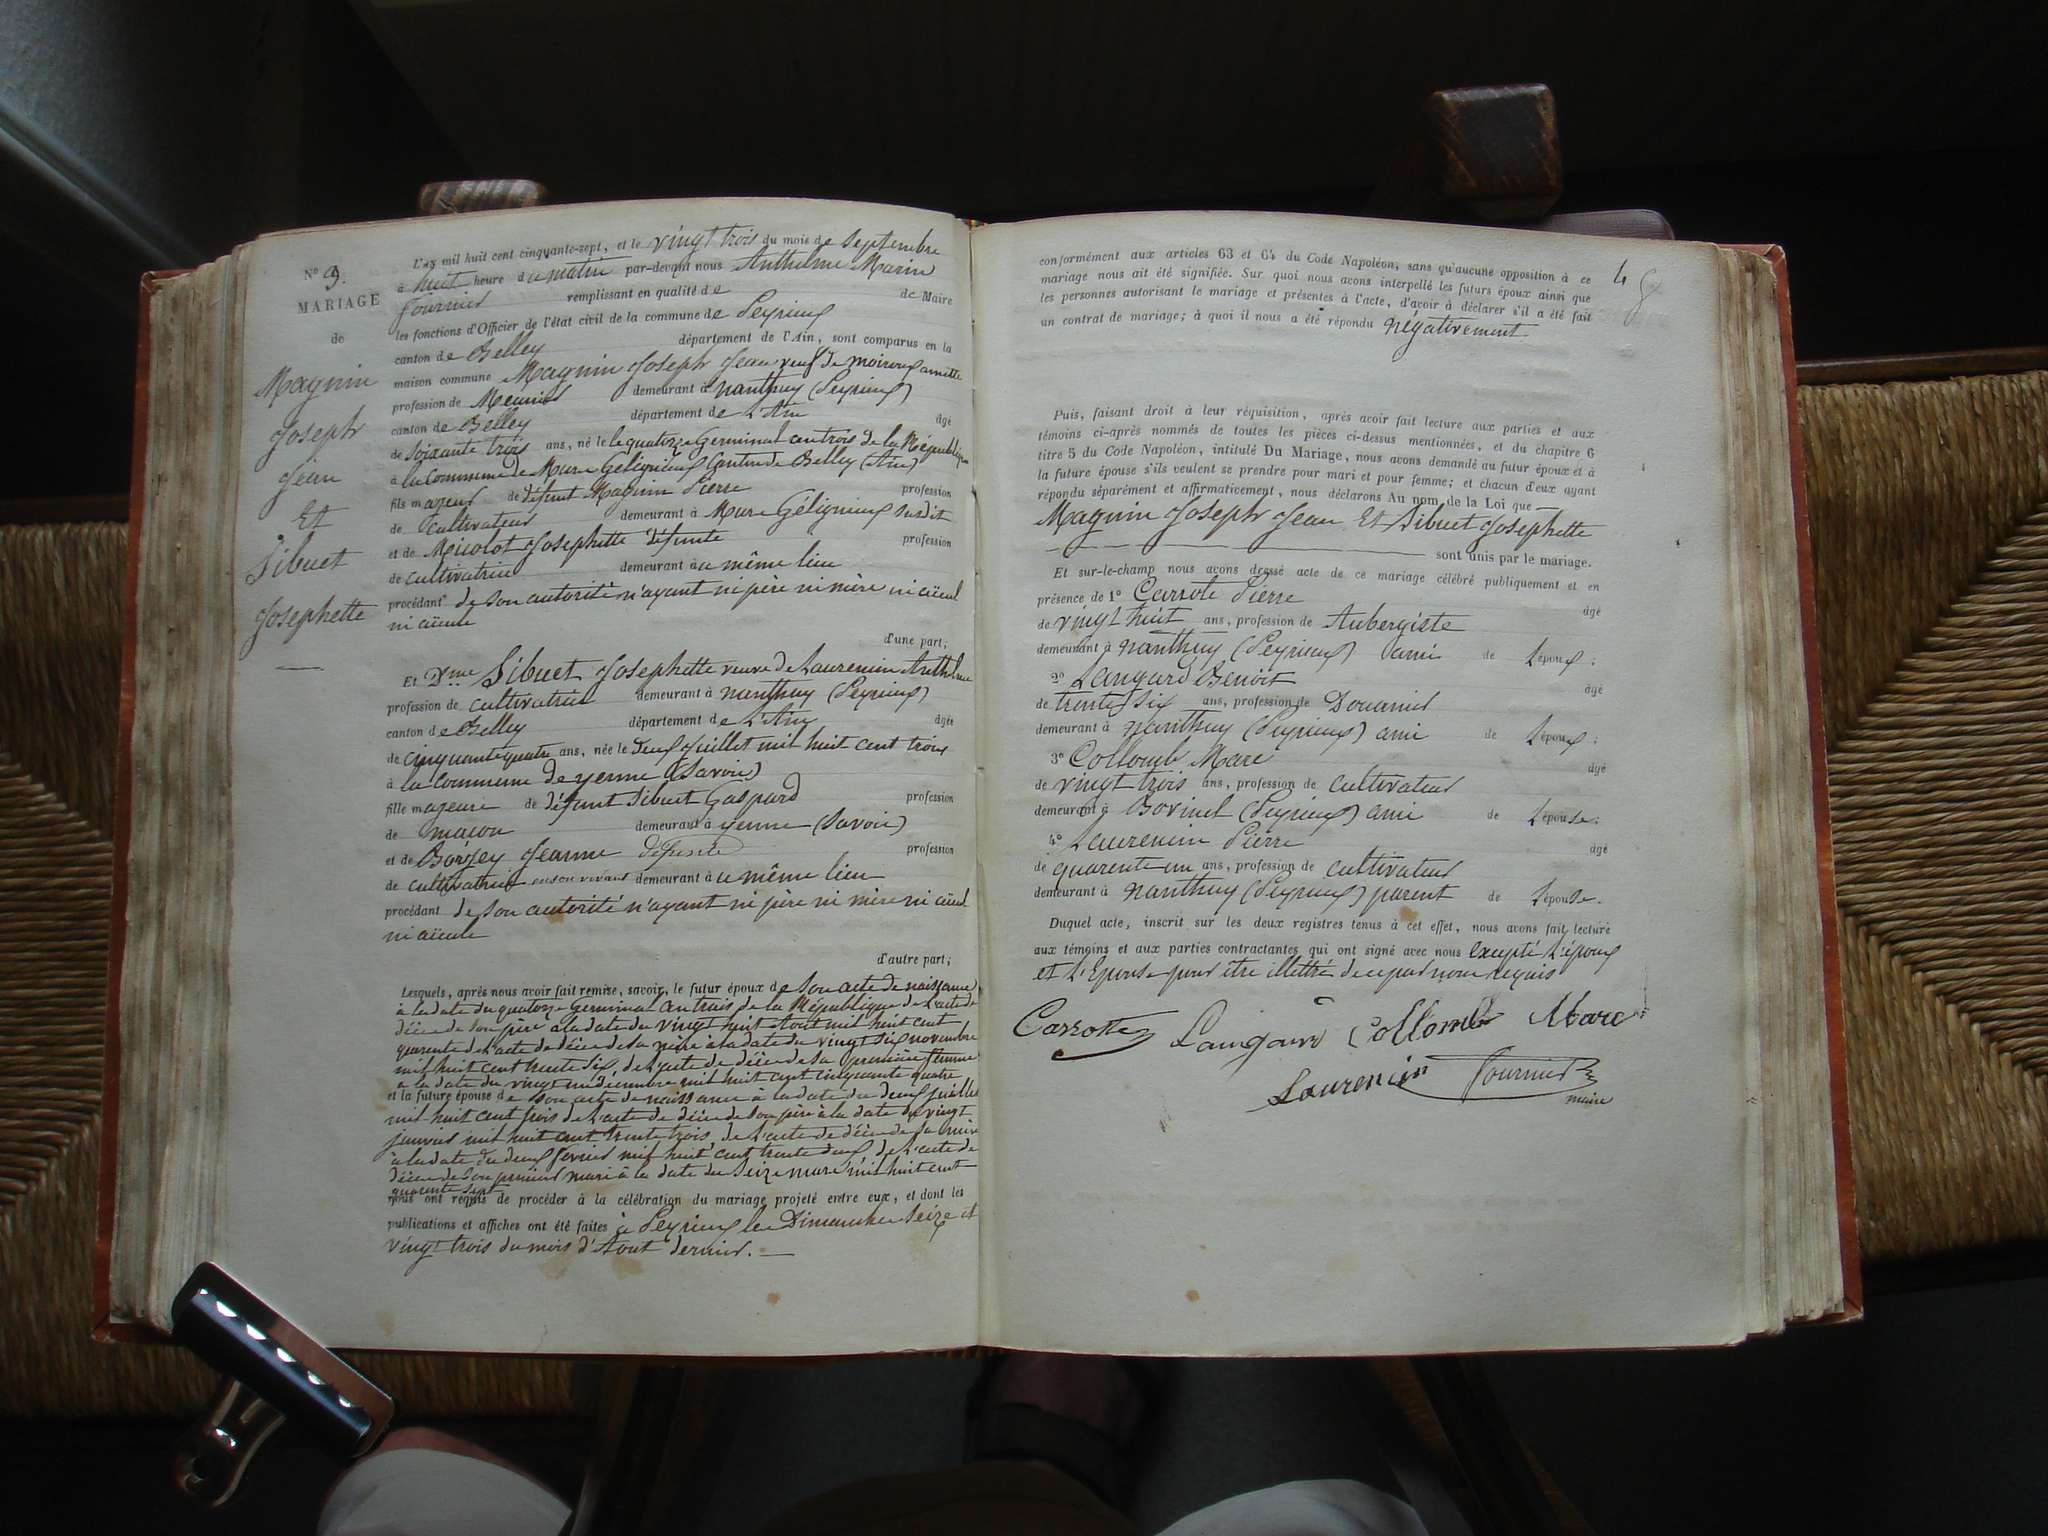 N° 9.
MARIAGE
de
Magnin
Joseph
Jean
Et
Sibuet
Josephette
L'an mil huit cent cinquante-sept, et le vingt trois du mois de Septembre
à huit heure du matin par-devant nous Anthelme Marin
Fournier remplissant en qualité de de Maire
les fonctions d'Officier de l'état civil de la commune de Peyrieux
canton de Belley département de l'Ain, sont comparus en la
maison commune Magnin Joseph Jean veuf de
profession de Meunier demeurant à Nanthuy (Peyrieux)
canton de Belley département de L'Ain âgé
de Soixante trois ans, né le le quatorze Germinal an trois de la République
à la Commune de Mure Gélignieux Canton de Belley (Ain)
fils majeur de défunt Magnin Pierre profession
de Cultivateur demeurant à Mure Géligneux susdit
et de Micolot Josephette défunte profession
de cultivatrice demeurant à au même lieu
procédant de son autorité n'ayant ni père ni mère ni aïeul
ni aïeule
d'une part;
Et Dme Sibuet Josephette veuve de Laurencin Anthelme
profession de cultivatrice demeurant à Nanthuy (Peyrieux)
canton de Belley département de L'Ain âgée
de cinquante quatre ans, née le deux Juillet mil huit cent trois
à la commune de yenne (Savoie)
fille majeure de défunt Sibuet Gaspard profession
de maçon demeurant à yenne (Savoie)
et de Jeanne défunte profession
de cultivatrice en son vivant demeurant à au même lieu
procédant de son autorité n'ayant ni père ni mère ni aïeul
ni aïeule
d'autre part;
Lesquels, après nous avoir fait remise, savoir, le futur époux de son acte de naissance
à la date du quatorze Germinal an trois de la République de L'acte de
décès de son père à la date du vingt huit Aout mil huit cent
quarente de L'acte de décès de sa mère à la date du vingt six novembre
mil huit cent trente six, de L'acte de décès de sa première femme
a la date du vingt un décembre mil huit cent cinquante quatre
et la future épouse de son acte de naissance à la date du deux juillet
mil huit cent trois de L'acte de décès de son père à la date du vingt
janvier mil huit cent trente trois de L'acte de décès de sa mère
à la date du deux février mil huit cent trente deux de L'acte de
décès de son premier mari à la date du Seize mars mil huit cent
quarente sept
nous ont requis de procéder à la célébration du mariage projeté entre eux, et dont les
publications et affiches ont été faites à Peyrieux les Dimanches Seize et
vingt trois du mois d'Aout dernier.
conformément aux articles 63 et 64 du Code Napoléon, sans qu'aucune opposition à ce
mariage nous ait été signifiée. Sur quoi nous avons interpellé les futurs époux ainsi que
les personnes autorisant le mariage et présentes à l'acte, d'avoir à déclarer s'il a été fait
un contrat de mariage; à quoi il nous a été répondu négativement
Puis, faisant droit à leur réquisition, après avoir fait lecture aux parties et aux
témoins ci-après nommés de toutes les pièces ci-dessus mentionnées, et du chapitre 6
titre 5 du Code Napoléon, intitulé Du Mariage, nous avons demandé au futur époux et à
la future épouse s'ils veulent se prendre pour mari et pour femme; et chacun d'eux ayant
répondu séparément et affirmativement, nous déclarons Au nom de la Loi que
Magnin Joseph Jean Et Sibuet Josephette
sont unis par le mariage.
Et sur-le-champ nous avons dressé acte de ce mariage célébré publiquement et en
présence de 1° Carrote Pierre âgé
de vingt huit ans, profession de Aubergiste
demeurant à Nanthuy (Peyrieux) ami de L'époux;
2° Langard Benoit âgé
de trente Six ans, profession de Douanier
demeurant à Nanthuy (Peyrieux) ami de L'époux;
3° Collomb Marc âgé
de vingt trois ans, profession de cultivateur
demeurant à Bovinel (Peyrieux) ami de L'épouse;
4° Laurencin Pierre âgé
de quarente un ans, profession de cultivateur
demeurant à Nanthuy (Peyrieux) parent de L'épouse.
Duquel acte, inscrit sur les deux registres tenus à cet effet, nous avons fait lecture
aux témoins et aux parties contractantes qui ont signé avec nous excepté L'époux
et L'Epouse pour être illettré de ce par nous requis
Carrotte Langard Collomb Marc
Laurencin Fournier
maire